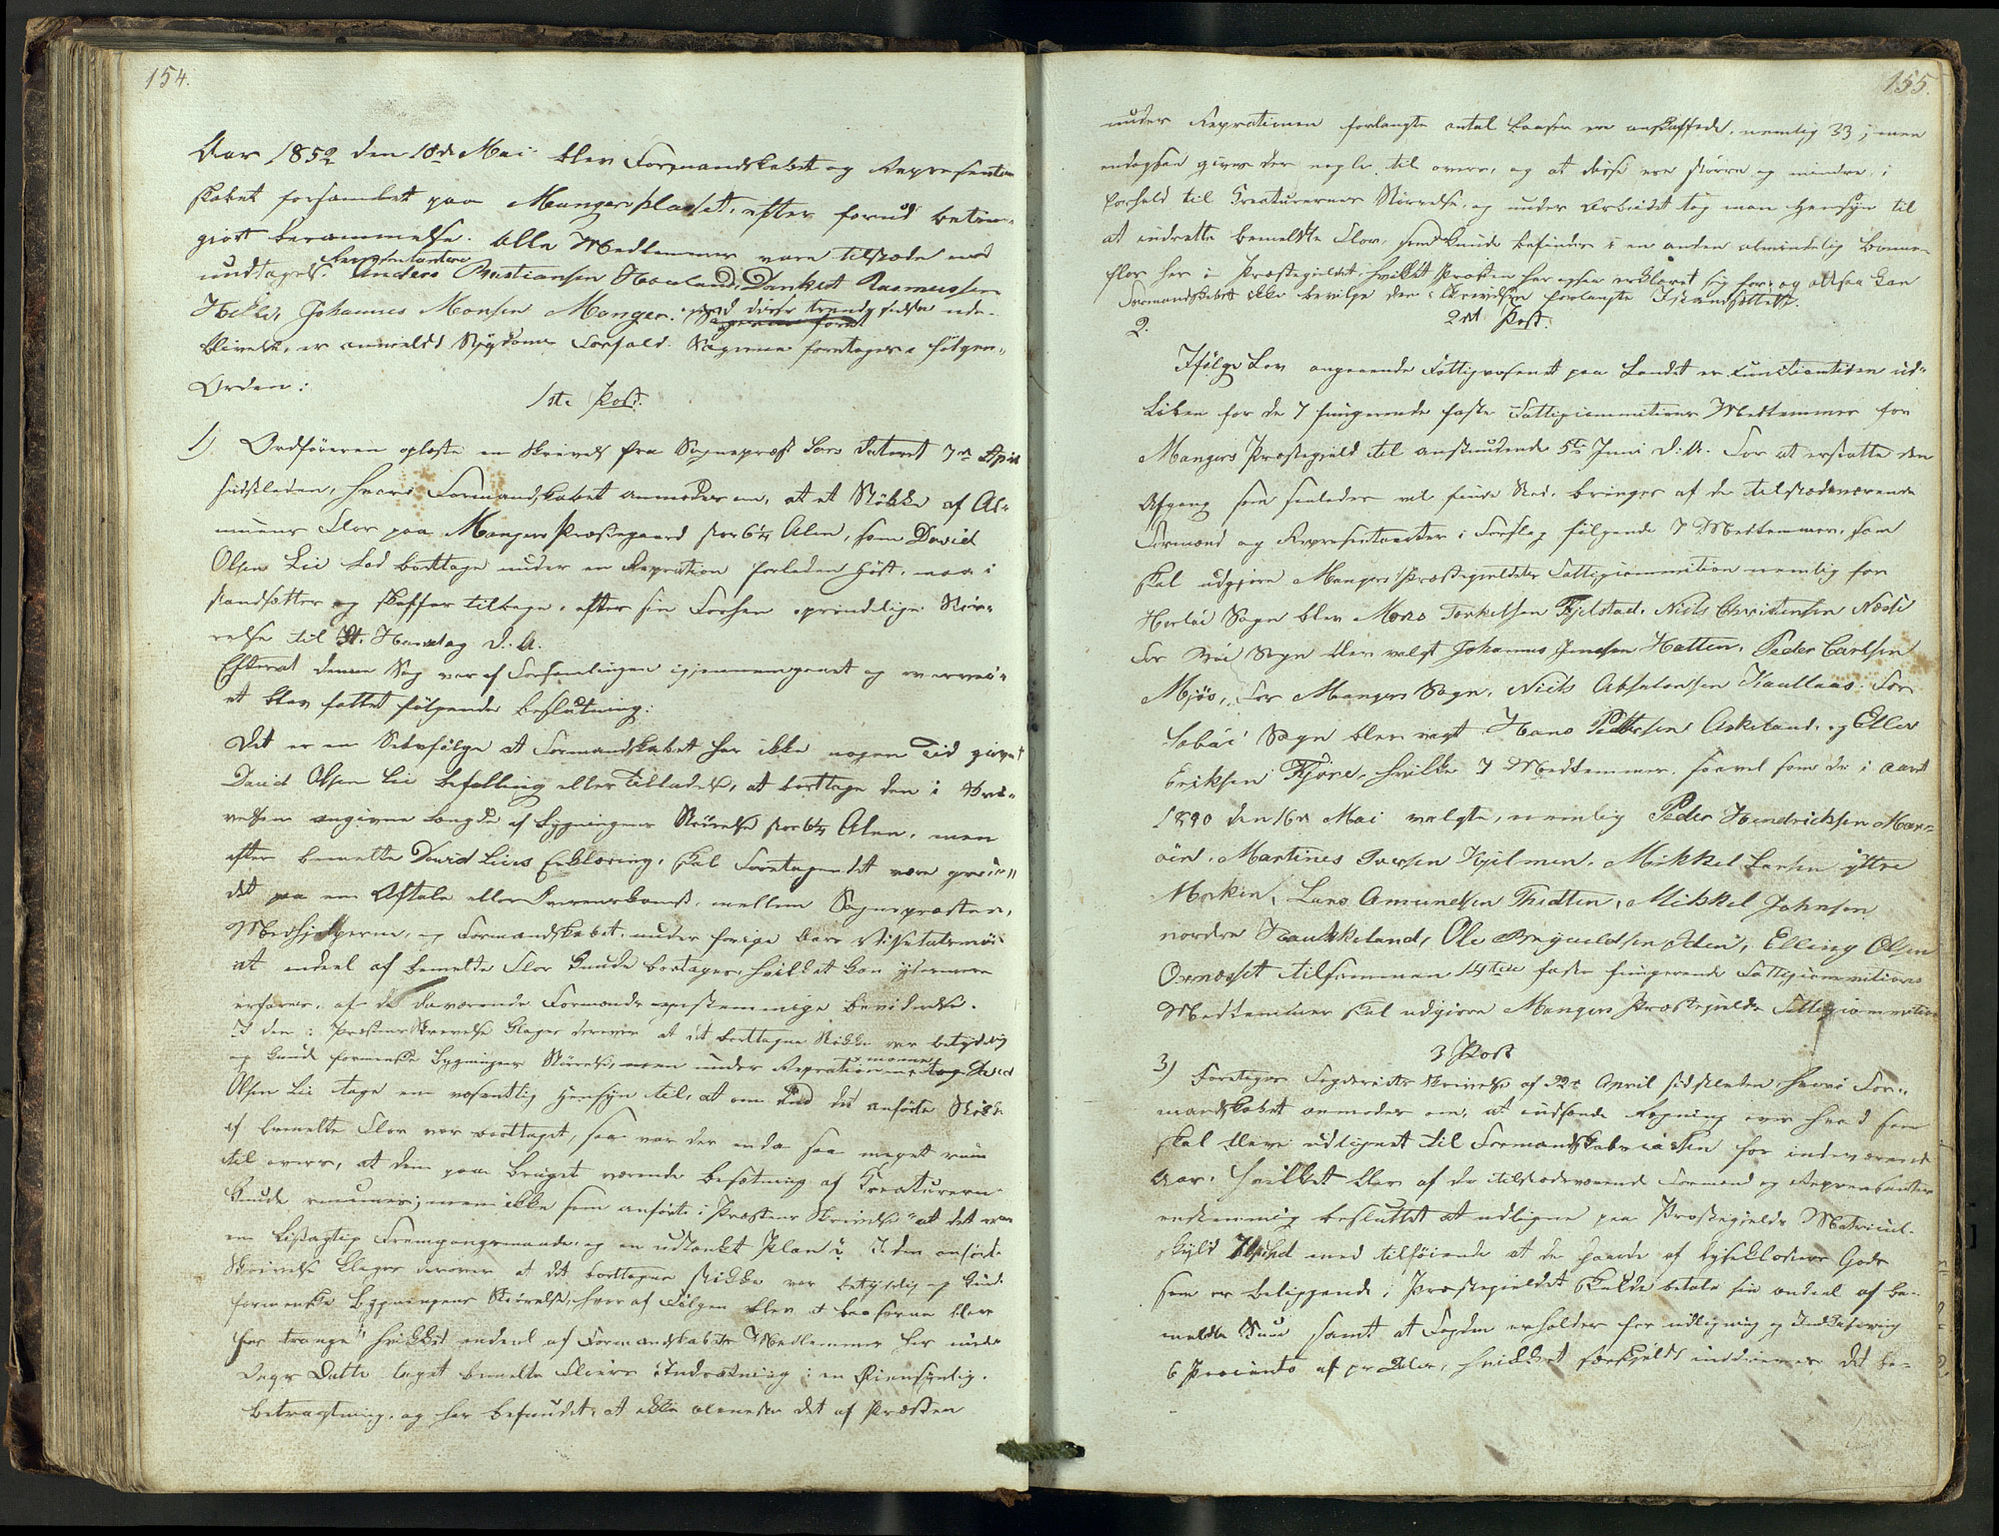 154.
Aar 1852 den 18de Mai blev Formandskabet og Representan
skabet forsamlet paa Mangerpladset, efter forud betim-
giort berammelse. Alle Medlemmer vare tilstæde med
undtagelse Representantere Anders Christiansen Hovland, Dankert Rasmussen
Helle, Johannes Monsen Manger. ved disse trende sidste ude-
blivelse, er anmeldt Sygdoms Forfald. Sagerne foretoges i følgen-
Orden:
1ste Post.
1) Ordføreren oplæste en Skrivelse fra Sognepræst Dateret 7de April
sidstleden, hvori Formandskabet anmodes om, at et Stökke af Al-
muens Flor paa Mangers Præstegaard stor 6¼ Alen, som David
Olsen Lie lod borttage under en Repration forleden Høst, maa i
standsætter og skaffer tilbage, efter sin forhen oprindelige Stør-
relse til St. Hansdag d. A.
Efterat denne Sag var af Forsamlingen igjennemgaaet og overvei-
et blev fattet følgende beslutning:
Det er en Selvfølge at Formandskabet har ikke nogen Tid givet
David Olsen Lie befalling eller Tilladelse, at borttage den i Skri-
velsen angivne Længde af bygningens Størrelse stor 6¼ Alen, men
efter bemeldte David Lies Erklæring, skal Foretagendet være grun-
det paa en Aftale eller Overenskomst mellem Sognepræsten,
Medhjelperne, og Formandskabet, under forige Aars Visitatsmøde
at endeel af bemeldte Flor kunde bortages, hvilket kan ydermere
erfares, af de daværende Formænds eenstemmige bevidnelse.
I den i Præstens Skrivelse klages derover at det borttagne Stökke var betydelig
og kunde formenske bygningens Störrelse, men under Reprationen, tog David
Olsen Lie tage en væsentlig Hensyn til, at om end det anførte Stökke
af bemeldte Flor var borttaget, saa var der enda saa meget rum
til overs, at den paa bruget værende besætning af Kreaturerne
kunde rummes; men ikke som anført i Præstens Skrivelse "at det var
en listagtig Fremgangsmaade, og en udtænkt Plan" I den anførte
Skrivelse klages derover at det borttagne stökke var betydelig og kund
formenske bygningens Störrelse, hvor af Følgen blev at baaserne blev
for trange" hvilket endeel af Formandskabets Medlemmer har under
Dags Datto taget bemeldte Floers Indretning i en Øiensynlig-
betragtning, og har befundet, at ikke alenest det af Præsten
155.
under Reprationen forlangte antal baaser ere anskaffede, nemlig 33; men
endogsaa gives der nogle til overs, og at disse ere større og mindre, i
forhold til Kreaturernes Störrelse, og under Arbeidet tog man Hensyn til
at indrette bemeldte Flor, som kunde befindes i en anden almindelig bonne-
flor her i Præstegjeldet, hvilket Præsten har ogsaa erklæret sig for; og altsaa kan
Formandskabet ikke bevilge den i Skrivelsen forlangte Istandsættelse.
2. 2det Post.
Ifølge Lov angaaende Fattigvæsenet paa Landet er Functionstiden ud-
løben for de 7 fungerende faste Fattigcommisions Medlemmer for
Mangers Præstegjeld til anstundende 5te Juni d. A. For at erstatte den
Afgang som saaledes vil finde Sted, bringes af de tilstædeværende
Formænd og Representanter i Forslag følgende 7 Medlemmer, som
skal udgjøre Mangers Præstegjelds Fattigcommition nemlig for
Herlø Sogn blev Mons Torkelsen Fjelstad, Niels Christensen Næsse
For Bøe Sogn blev valgt Johannes Jensen Hatten, Peder Carlsen
Mjøs, For Mangers Sogn, Niels Absalonsen Kaullaas. For
Sæbøe Sogn blev valgt Hans Pettersen Askeland, og Eller
Eriksen Fjøre, hvilke 7 Medlemmer, saavel som de i Aaret
18 den 16de Mai valgte, nemlig Peder Hendrichsen Man-
øen, Martines Iversen Kjelmen, Mikkel Larsen Yttre
Morken, Lars Amundsen Tredten, Mikkel Johnsen
nordre Haukeland, Ole Seen, Elling Olsen
tilsammen 14ten faste fungerende Fattigcommitions
Medlemmer skal udgiøre Mangers Præstegjelds Fattigcommition
3 Post
3) Foretoges Fogderiets Skrivelse af 22de April sidstleden, hvori For-
mandskabet anmodes om, at indsende Regning over hvad som
skal blive udlignet til Formandskabscassen for indeværende
Aar. Hvilket blev af de tilstædeværende Formænd og Representanter
enstemmig besluttet at udligne paa Præstegjelds Matricul-
skyld med tilføiende at de Gaarde af Lyseklosters Gods
som er beliggende i Præstegjeldet skulde betale sin andeel af be-
meldte Sum samt at Fogden erholder for udligning og Indkasering
6 Procento af pr Dler, hvilket særskjeldt inddrives. Det be-